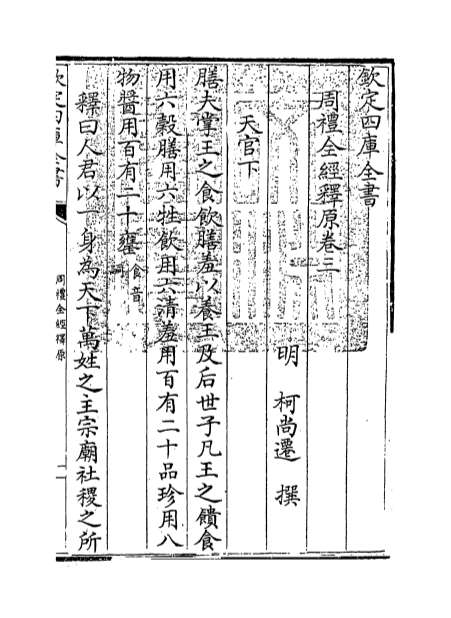 欽定四庫全書
周禮全經釋原卷三
明 柯尚遷 撰
天官下
膳夫掌王之食飲膳羞以養王及后世子凡王之饋食
用六穀膳用六牲飲用六清羞用百有二十品珍用八
物醬用百有二十罋 食音
釋曰人君以一身為天下萬姓之主宗廟社稷之所
欽定四庫全書
周禮全經釋原